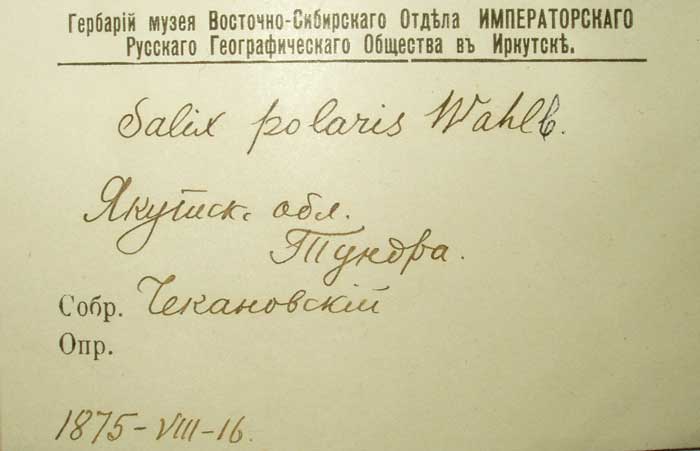 Гербарій музея Восточно-Сибирскаго Отдѣла ИМПЕРАТОРСКАГО
Русскаго Географическаго Общества въ Иркутскѣ.
Salix polaris Wahlb.
Якутск. обл.
Тундра.
Собр. Чекановскій
Опр.
1875-VIII-16.